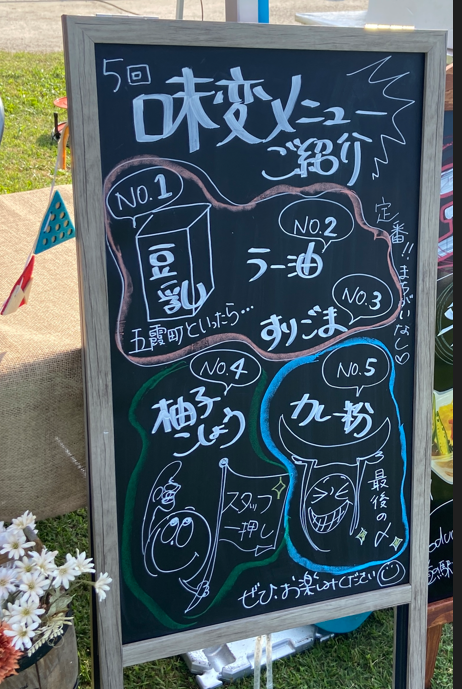 5回
味変メニュー
ご紹介
NO.1
豆乳
五霞町といったら…
NO.2
ラー油
NO.3
すりごま
定番!!まちがいなし♡
NO.4
柚子
こしょう
スタッフ
一押し
NO.5
カレー粉
最後の〆
ぜひ、お楽しみください☺